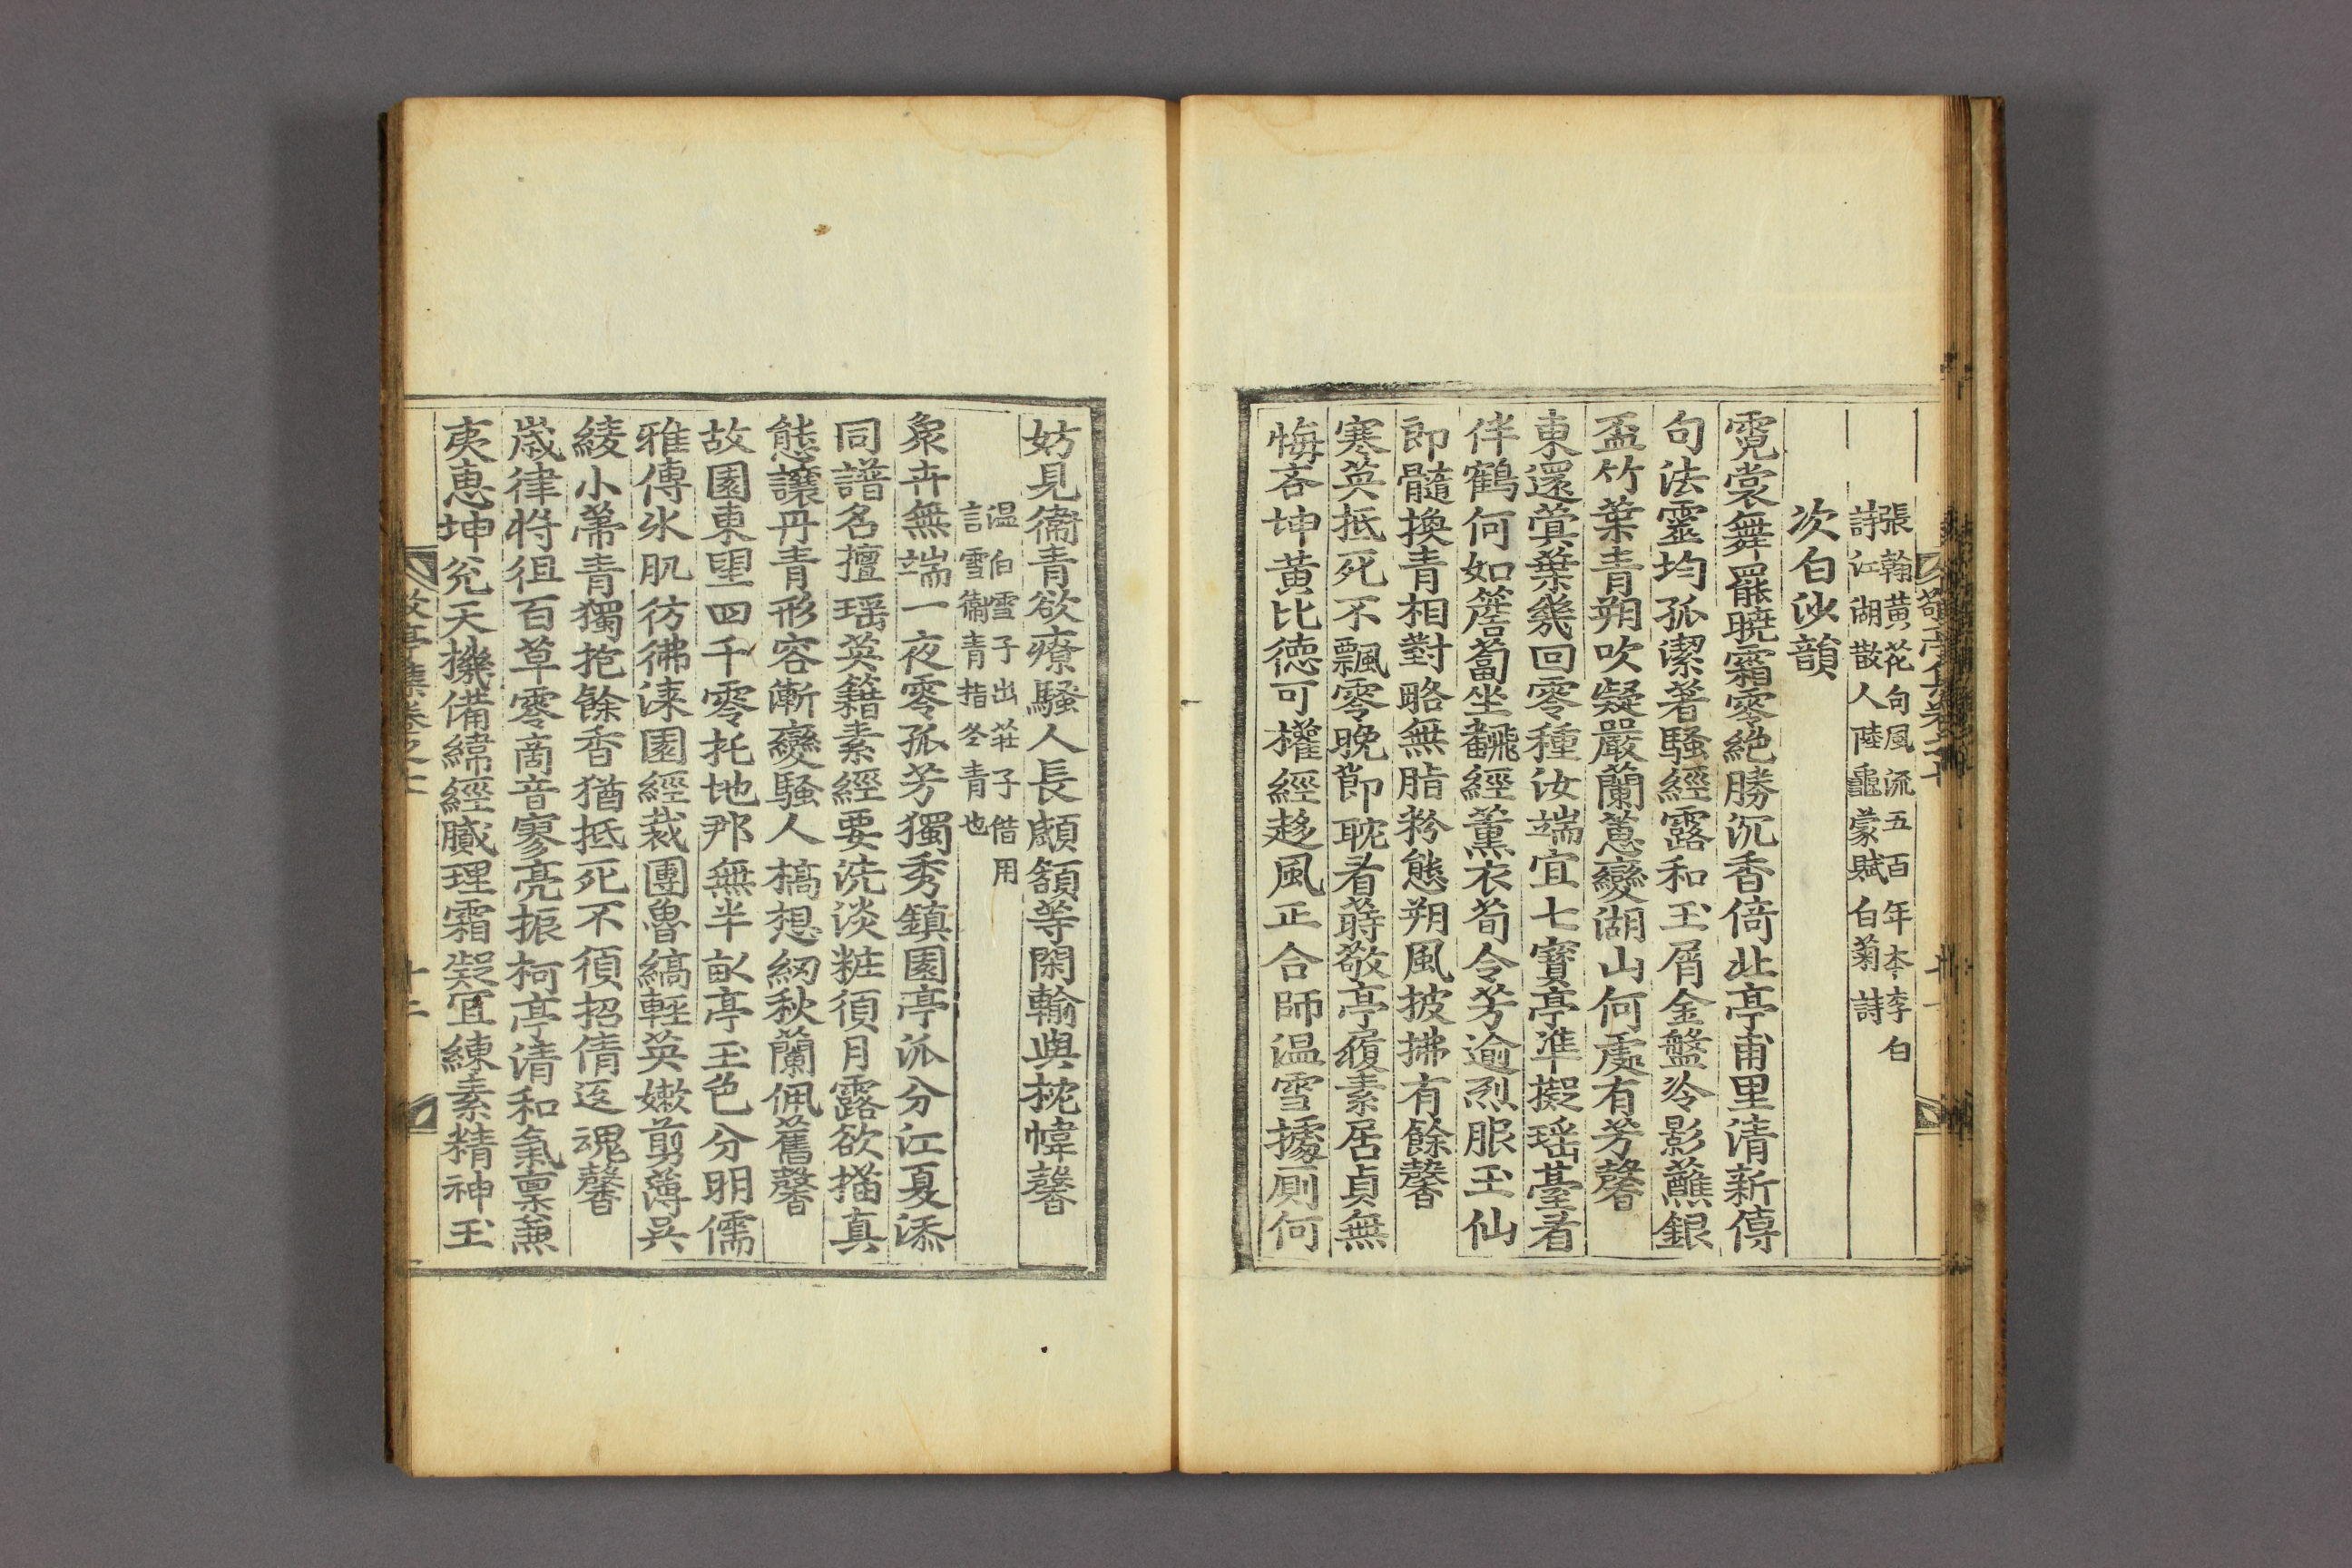 張翰黃花句風流五百年李白
詩江湖散人陸龜蒙賦白菊詩
次白沙韻
霓裳舞罷曉霜零絶勝沉香倚北亭甫里清新傳
句法靈均孤潔著騷經露和玉屑金盤冷影蘸銀
盃竹葉靑朔吹凝嚴蘭蕙變湖山何處有芳馨
東還蓂葉幾回零種汝端宜七寶亭準擬瑶臺看
伴鶴何如簷蔔坐翻經薰衣荀令芳逾烈服玉仙
郎髓換靑相對略無脂粉態朔風披拂有餘馨
寒英抵死不飄零晩節耽看蒔敬亭履素居貞無
悔吝坤黃比德可權經趍風正合師温雪據厠何
妨見衞靑欲療騷人長顑頷等閑輸與枕幃馨
温伯雪子出莊子借用
言雪衞靑指冬靑也
衆卉無端一夜零孤芳獨秀鎮園亭派分江夏添
同譜名擅瑶英籍素經要洗淡粧須月露欲描眞
態讓丹靑形容漸變騷人槁想紉秋蘭佩舊馨
故園東望四千零托地那無半畝亭玉色分明儒
雅傳氷肌彷彿漆園經裁團魯縞輕英嫩剪薄吳
綾小蔕靑獨抱餘香猶抵死不須招倩返魂馨
歲律將徂百草零商音寥亮振柯亭淸和氣禀兼
夷惠坤兊天機備緯經膩理霜凝冝練素精神玉
敬亭集卷之十
十二